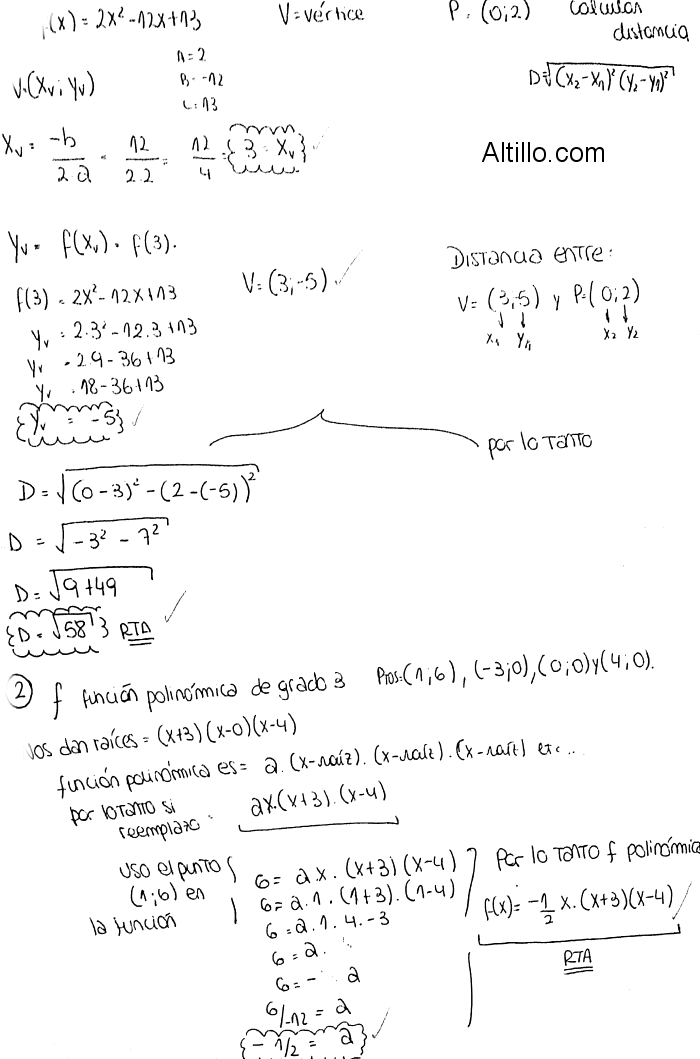 f(x) = 2x² - 12x + 13 V = vértice P = (0;2) calcular distancia
V = (Xv ; Yv) A = 2 D = √(x₂-x₁)² (y₂-y₁)²
B = -12
C = 13
Xv = -b / 2.a = 12 / 2.2 = 12 / 4 = { 3 = Xv }
Altillo.com
Yv = f(Xv) = f(3).
f(3) = 2x² - 12x + 13 V = (3;-5) Distancia entre:
V = (3,-5) y P = (0;2)
x₁ y₁ x₂ y₂
Yv = 2.3² - 12.3 + 13
Yv = 2.9 - 36 + 13
Yv = 18 - 36 + 13
{ Yv = -5 }
por lo tanto
D = √(0-3)² - (2-(-5))²
D = √-3² - 7²
D = √9 + 49
{ D = √58 } RTA
② f función polinómica de grado 3 Ptos = (1;6), (-3;0), (0;0) y (4;0).
Nos dan raíces = (x+3)(x-0)(x-4)
función polinómica es = a.(x-raíz).(x-raíz).(x-raíz) etc...
por lo tanto si reemplazo = ax.(x+3).(x-4)
uso el punto (1;6) en la función
6 = a x . (x+3)(x-4)
6 = a.1.(1+3).(1-4)
6 = a.1.4.-3
6 = a.
6 = - a
6/-12 = a
{ -1/2 = a }
Por lo tanto f polinómica
f(x) = -1/2 x.(x+3)(x-4)
RTA